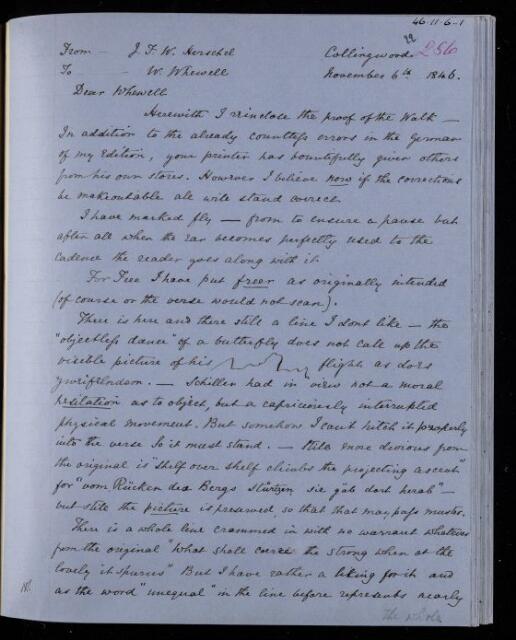 46-11-6-1
22
286
From — J. F. W. Herschel Collingwood
To — W. Whewell November 6th 1846.
Dear Whewell
Herewith I reinclose the proof of the Walk —
In addition to the already countless errors in the German
of my Edition, your printer has bountifully given others
from his own stores. However I believe now if the corrections
be makeoutable all will stand correct.
I have marked fly — from to ensure a pause but
after all when the ear becomes perfectly used to the
cadence the reader goes along with it.
For Free I have put freer as originally intended
(of course or the verse would not scan).
There is here and there still a line I dont like — the
"objectless dance" of a butterfly does not call up the
visible picture of his flight as does
— Schiller had in view not a moral
hesitation as to object, but a capriciously interrupted
physical movement. But somehow I can't hitch it properly
into the verse so it must stand. — Still more devious from
the original is "Shelf over shelf climbs the projecting ascent"
for "vom Rücken des Bergs stürtzen sie gäh dort herab" —
but still the picture is preserved, so that that may pass muster.
There is a whole line crammed in with no warrant whatever
from the original "What shall coerce the strong when at the
lovely it spurns" But I have rather a liking for it and
as the word "unequal" in the line before represents nearly
the whole